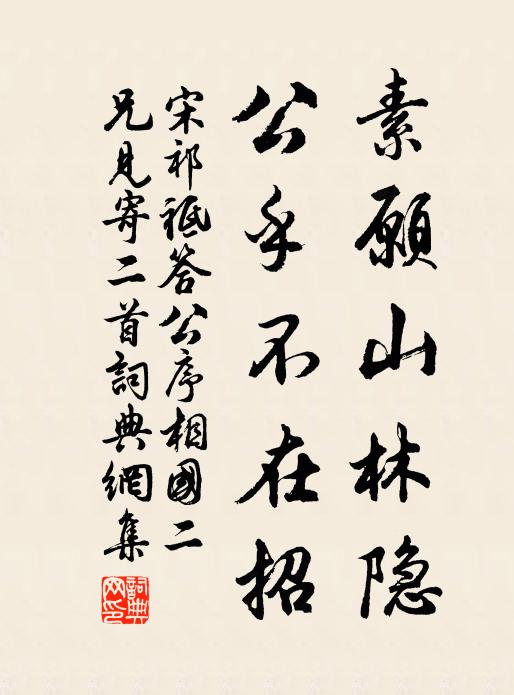 素願山林隐
公乎不在招
宋祁祗答公序相國二
兄見寄二首詞典網集
詞典網印